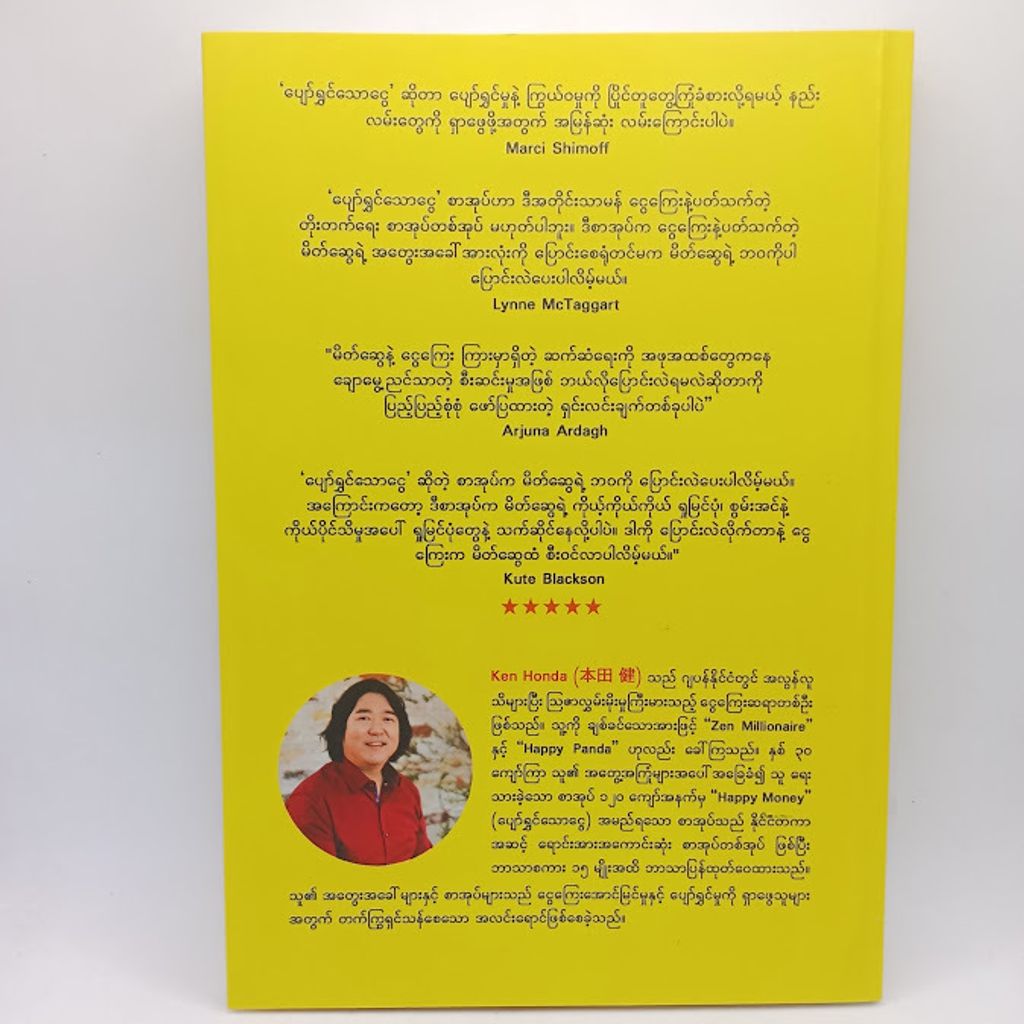 ‘ပျော်ရွှင်သောငွေ’ ဆိုတာ ပျော်ရွှင်မှုနဲ့ ကြွယ်ဝမှုကို ပြိုင်တူတွေ့ကြုံခံစားလို့ရမယ့် နည်း
လမ်းတွေကို ရှာဖွေဖို့အတွက် အမြန်ဆုံး လမ်းကြောင်းပါပဲ။
Marci Shimoff
‘ပျော်ရွှင်သောငွေ’ စာအုပ်ဟာ ဒီအတိုင်းသာမန် ငွေကြေးနဲ့ပတ်သက်တဲ့
တိုးတက်ရေး စာအုပ်တစ်အုပ် မဟုတ်ပါဘူး။ ဒီစာအုပ်က ငွေကြေးနဲ့ပတ်သက်တဲ့
မိတ်ဆွေရဲ့ အတွေးအခေါ်အားလုံးကို ပြောင်းစေရုံတင်မက မိတ်ဆွေရဲ့ ဘဝကိုပါ
ပြောင်းလဲပေးပါလိမ့်မယ်။
Lynne McTaggart
"မိတ်ဆွေနဲ့ ငွေကြေး ကြားမှာရှိတဲ့ ဆက်ဆံရေးကို အဖုအထစ်တွေကနေ
ချောမွေ့ညင်သာတဲ့ စီးဆင်းမှုအဖြစ် ဘယ်လိုပြောင်းလဲရမလဲဆိုတာကို
ပြည့်ပြည့်စုံစုံ ဖော်ပြထားတဲ့ ရှင်းလင်းချက်တစ်ခုပါပဲ”
Arjuna Ardagh
‘ပျော်ရွှင်သောငွေ’ ဆိုတဲ့ စာအုပ်က မိတ်ဆွေရဲ့ ဘဝကို ပြောင်းလဲပေးပါလိမ့်မယ်။
အကြောင်းကတော့ ဒီစာအုပ်က မိတ်ဆွေရဲ့ ကိုယ့်ကိုယ်ကိုယ် ရှုမြင်ပုံ၊ စွမ်းအင်နဲ့
ကိုယ်ပိုင်သိမှုအပေါ် ရှုမြင်ပုံတွေနဲ့ သက်ဆိုင်နေလို့ပါပဲ။ ဒါကို ပြောင်းလဲလိုက်တာနဲ့ ငွေ
ကြေးက မိတ်ဆွေထံ စီးဝင်လာပါလိမ့်မယ်။"
Kute Blackson
Ken Honda (本田 健) သည် ဂျပန်နိုင်ငံတွင် အလွန်လူ
သိများပြီး သြဇာလွှမ်းမိုးမှုကြီးမားသည့် ငွေကြေးဆရာတစ်ဦး
ဖြစ်သည်။ သူ့ကို ချစ်ခင်သောအားဖြင့် “Zen Millionaire”
နှင့် “Happy Panda” ဟုလည်း ခေါ်ကြသည်။ နှစ် ၃၀
ကျော်ကြာ သူ၏ အတွေ့အကြုံများအပေါ် အခြေခံ၍ သူ ရေး
သားခဲ့သော စာအုပ် ၁၂၀ ကျော်အနက်မှ “Happy Money”
(ပျော်ရွှင်သောငွေ) အမည်ရသော စာအုပ်သည် နိုင်ငံတကာ
အဆင့် ရောင်းအားအကောင်းဆုံး စာအုပ်တစ်အုပ် ဖြစ်ပြီး
ဘာသာစကား ၁၅ မျိုးအထိ ဘာသာပြန်ထုတ်ဝေထားသည်။
သူ၏ အတွေးအခေါ်များနှင့် စာအုပ်များသည် ငွေကြေးအောင်မြင်မှုနှင့် ပျော်ရွှင်မှုကို ရှာဖွေသူများ
အတွက် တက်ကြွရှင်သန်စေသော အလင်းရောင်ဖြစ်စေခဲ့သည်။